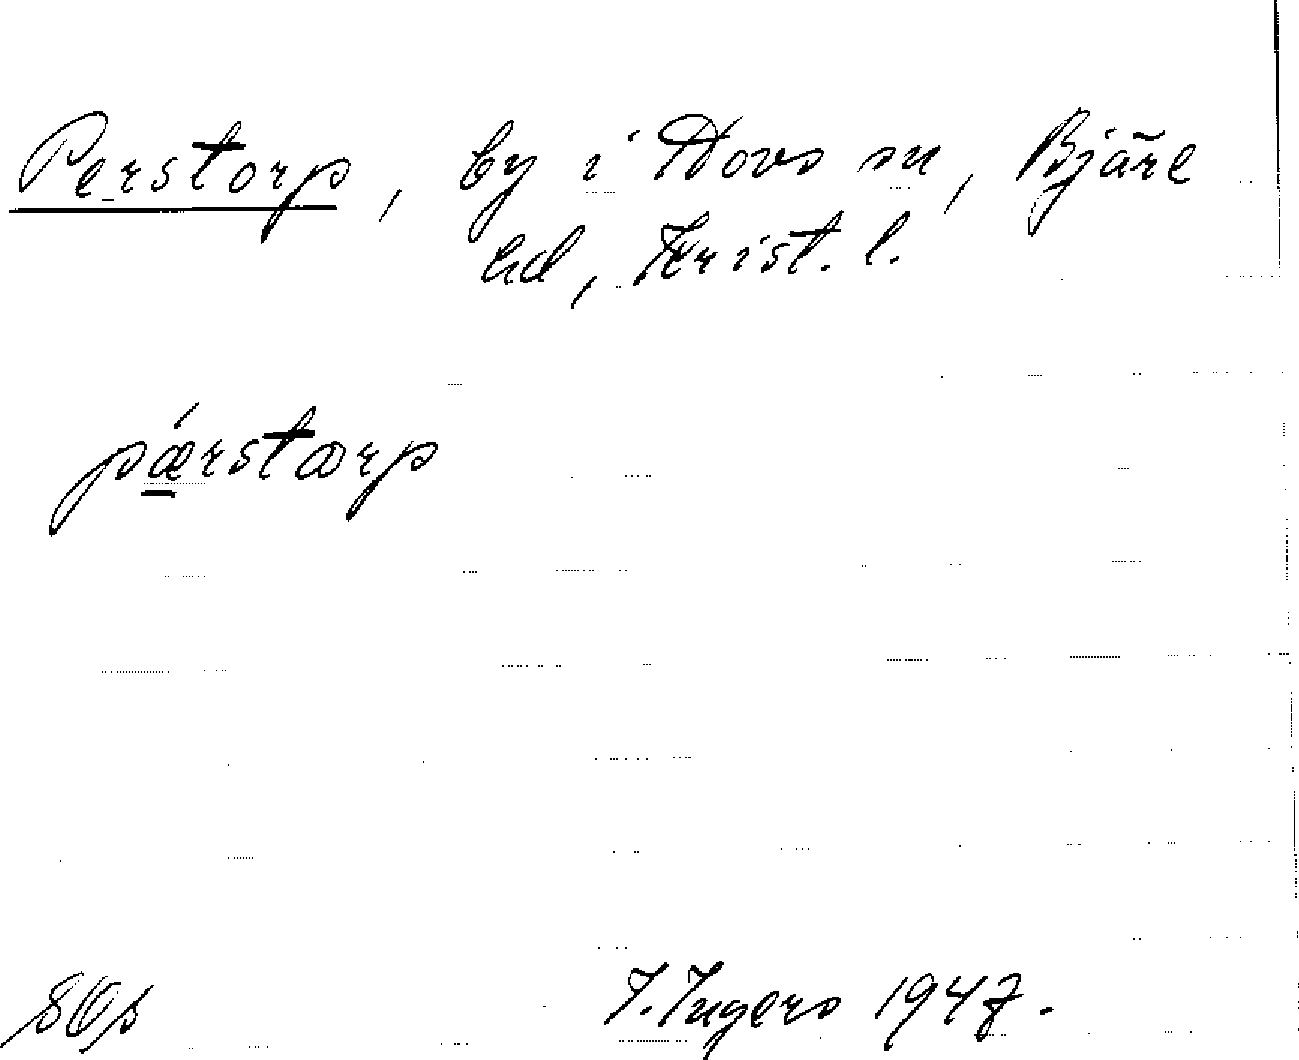 Perstorp, by i Hovs sn, Bjäre
hd, Krist. l.
pǽrstarp
SOs I. Ingers 1947.